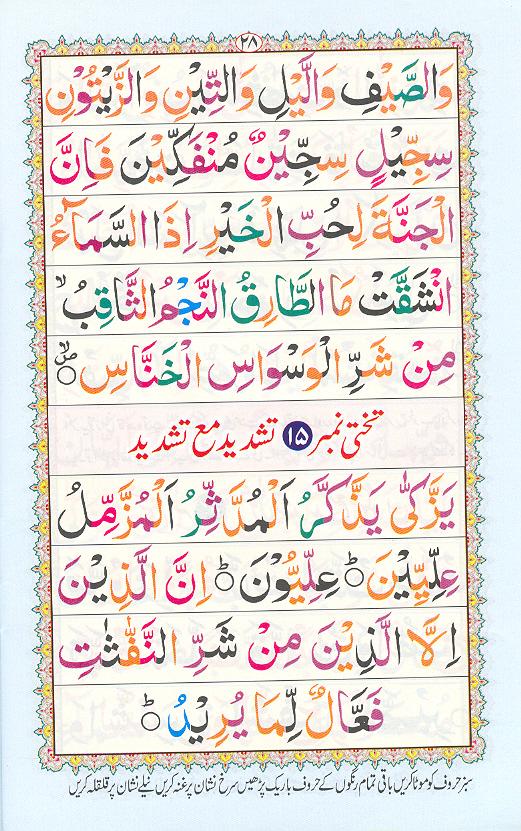 ۲۸
وَالصَّيْفِ وَالَّيْلِ وَالتِّيْنِ وَالزَّيْتُوْنِ
سِجِّيْلٍ سِجِّيْنٌ مُنْفَكِّيْنَ فَاِنَّ
الْجَنَّةَ لِحُبِّ الْخَيْرِ اِذَا السَّمَآءُ
انْشَقَّتْ مَا الطَّارِقُ النَّجْمُ الثَّاقِبُ ۙ
مِنْ شَرِّ الْوَسْوَاسِ الْخَنَّاسِ
تختی نمبر ۱۵ تشدید مع تشدید
يَزَّكّٰى يَذَّكَّرُ اَلْمُدَّثِّرُ اَلْمُزَّمِّلُ
عِلِّيِّيْنَ ؕ عِلِّيُّوْنَ ؕ اِنَّ الَّذِيْنَ
اِلَّا الَّذِيْنَ مِنْ شَرِّ النَّفّٰثٰتِ
فَعَّالٌ لِّمَا يُرِيْدُ ؕ
سبز حروف کو موٹا کریں باقی تمام رنگوں کے حروف باریک پڑھیں سرخ نشان پر غنہ کریں نیلے نشان پر قلقلہ کریں